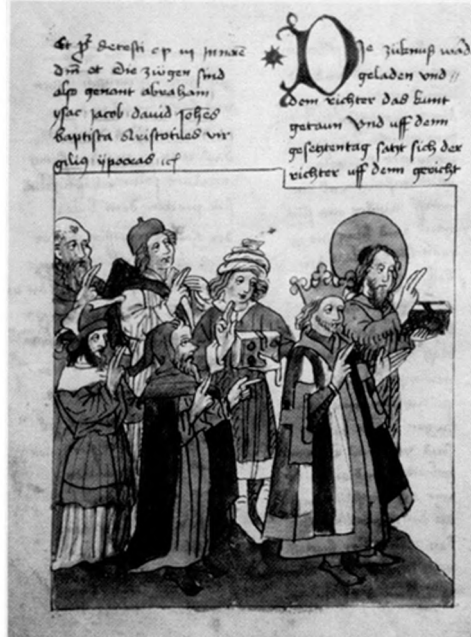 Et
et Die zügen sind
also genant abraham
ysac jacob david Johēs
baptista Aristotiles vir
gilius ypocras
Die
geladen vnd
dem richter das kunt
getaun Vnd uff denn
gesetzten tag satzt sich der
richter uff denn gericht